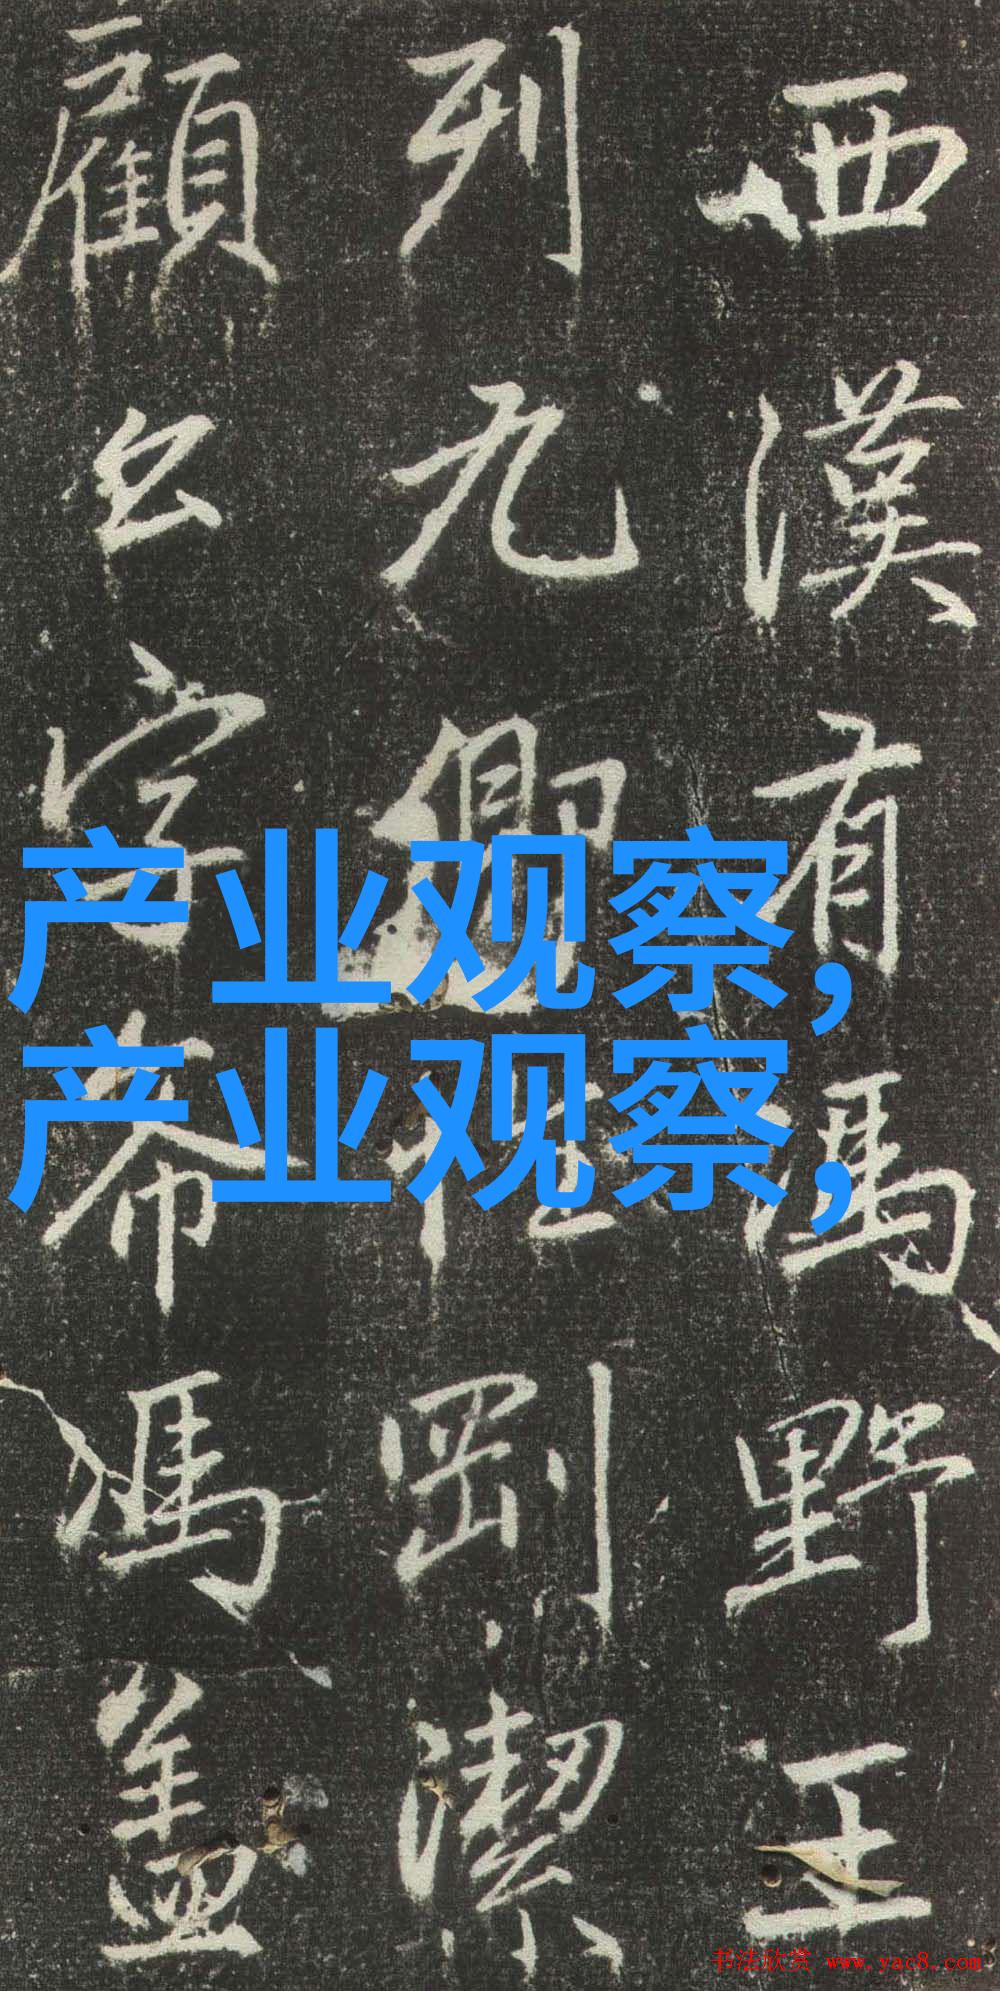 西漢有馮野王
列九卿性剛潔
顧公字希馮蓋
产业观察,
产业观察,
书法欣赏 www.yac8.com